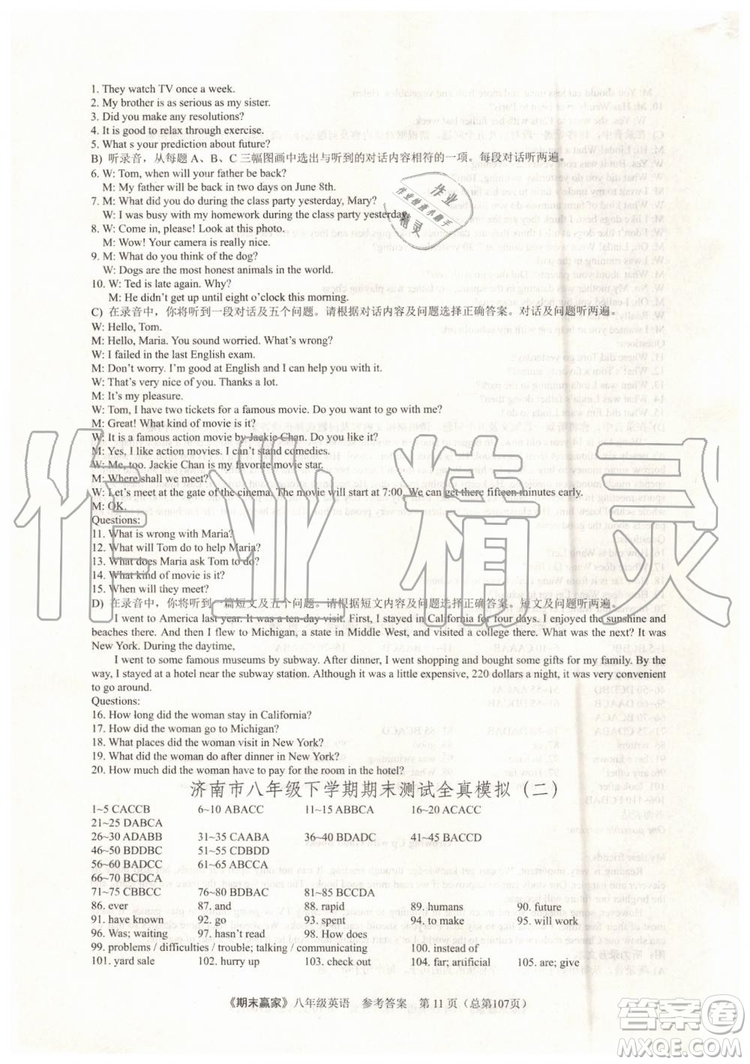 1. They watch TV once a week.
2. My brother is as serious as my sister.
3. Did you make any resolutions?
4. It is good to relax through exercise.
5. What s your prediction about future?
B) 听录音，从每题 A、B、C 三幅图画中选出与听到的对话内容相符的一项。每段对话听两遍。
6. W: Tom, when will your father be back?
M: My father will be back in two days on June 8th.
7. M: What did you do during the class party yesterday, Mary?
W: I was busy with my homework during the class party yesterday.
8. W: Come in, please! Look at this photo.
M: Wow! Your camera is really nice.
9. M: What do you think of the dog?
W: Dogs are the most honest animals in the world.
10. W: Ted is late again. Why?
M: He didn't get up until eight o'clock this morning.
C) 在录音中，你将听到一段对话及五个问题。请根据对话内容及问题选择正确答案。对话及问题听两遍。
W: Hello, Tom.
M: Hello, Maria. You sound worried. What's wrong?
W: I failed in the last English exam.
M: Don't worry. I'm good at English. I can help you.
W: That's very nice of you. Thanks a lot.
M: It's my pleasure.
W: Tom, I have two tickets for a famous movie. Do you want to go with me?
M: Great! What kind of movie is it?
W: It is a famous action movie by Jackie Chan. Do you like it?
M: Yes, I like action movies. I can't stand comedies.
W: Me, too. Jackie Chan is my favorite movie star.
M: Where shall we meet?
W: Let's meet at the gate of the cinema. The movie will start at 7:00. We can get there fifteen minutes early.
M: OK.
Questions:
11. What is wrong with Maria?
12. What will Tom do to help Maria?
13. What does Maria ask Tom to do?
14. What kind of movie is it?
15. When will they meet?
D) 在录音中，你将听到一篇短文及五个问题。请根据短文内容及问题选择正确答案。短文及问题听两遍。
I went to America last year. It was a ten-day visit. First, I stayed in California for four days. I enjoyed the sunshine and
beaches there. And then I flew to Michigan, a state in Middle West, and visited a college there. What was the next? It was
New York. During the daytime,
I went to some famous museums by subway. After dinner, I went shopping and bought some gifts for my family. By the
way, I stayed at a hotel near the subway station. Although it was a little expensive, 220 dollars a night, it was very convenient
to go around.
Questions:
16. How long did the woman stay in California?
17. How did the woman go to Michigan?
18. What places did the woman visit in New York?
19. What did the woman do after dinner in New York?
20. How much did the woman have to pay for the room in the hotel?
济南市八年级下学期期末测试全真模拟（二）
1~5 CACCB 6~10 ABACC 11~15 ABBCC 16~20 ACACC
21~25 DABCA
26~30 ADABB 31~35 CAABA 36~40 BDADC 41~45 BACCD
46~50 BDDBC 51~55 CDBDD
56~60 BADCC 61~65 ABCCA
66~70 BCACA
71~75 CBBCC 76~80 BDBAC 81~85 BCCDA
86. ever 87. and 88. rapid 89. humans 90. future
91. have known 92. go 93. spent 94. to make 95. will work
96. Was; waiting 97. hasn't read 98. How does
99. problems / difficulties / trouble; talking / communicating 100. instead of
101. yard sale 102. hurry up 103. check out 104. far; artificial 105. are; give
《期末赢家》八年级英语 参考答案 第 11 页（总第107页）
作业精灵